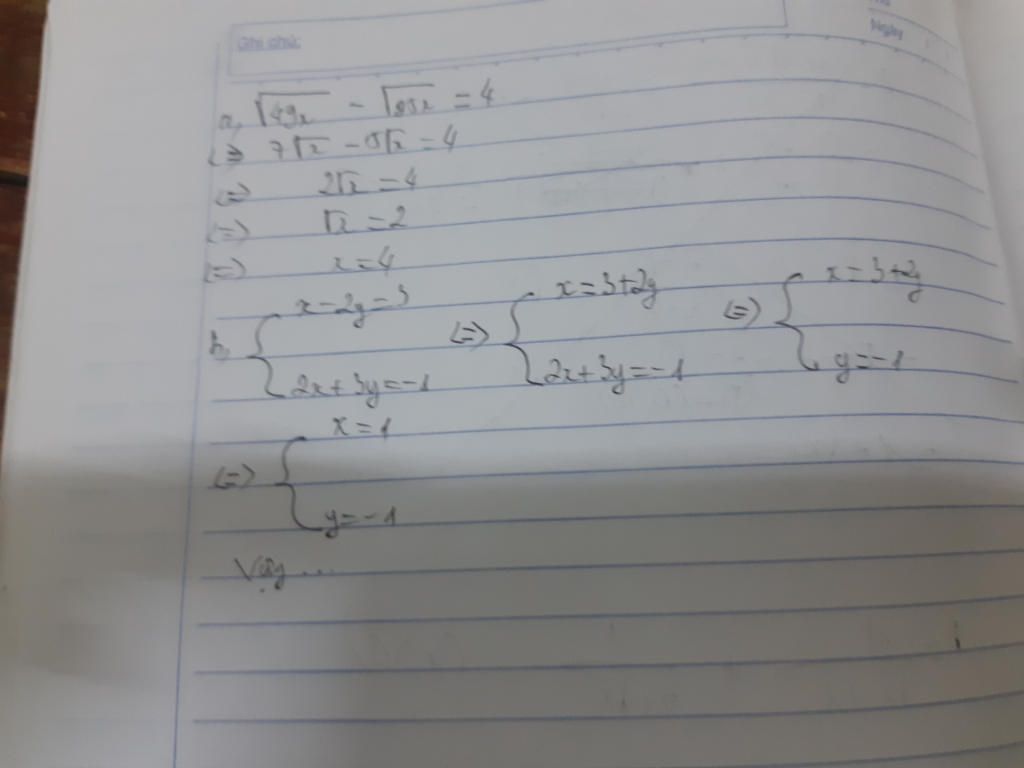 Ghi chú:
Ngày
a, √49x - √25x = 4
<=> 7√x - 5√x = 4
<=> 2√x = 4
<=> √x = 2
<=> x = 4
b, { x - 2y = 3 <=> { x = 3 + 2y <=> { x = 3 + 2y
2x + 3y = -1 2x + 3y = -1 y = -1
<=> { x = 1
y = -1
Vậy ...